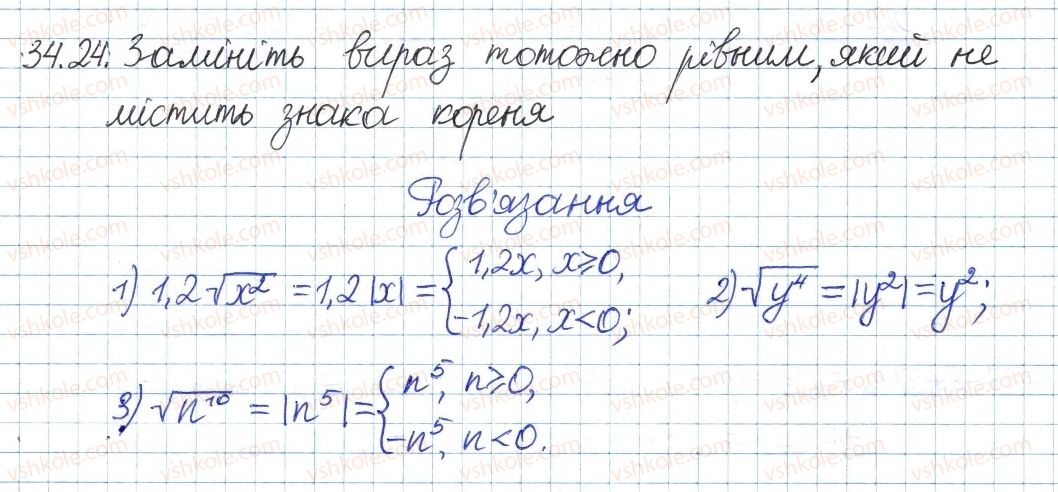 34.24. Замініть вираз тотожно рівним, який не
містить знака кореня
Розв'язання
1) 1,2√x² = 1,2|x| = { 1,2x, x ≥ 0, -1,2x, x < 0; 2) √y⁴ = |y²| = y²;
3) √n¹⁰ = |n⁵| = { n⁵, n ≥ 0, -n⁵, n < 0.
vshkole.com